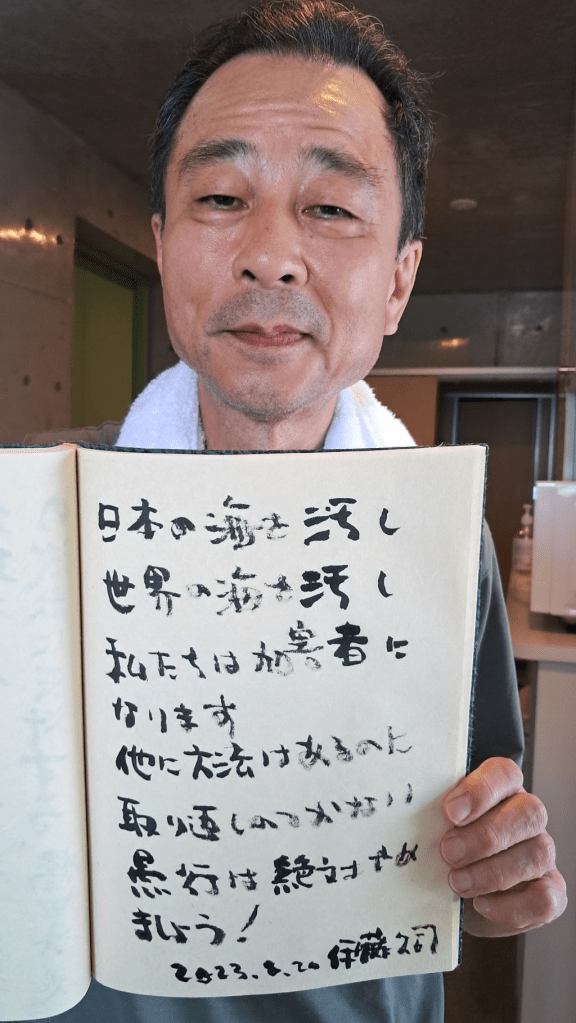 日本の海を汚し
世界の海を汚し
私たちは加害者に
なります
他に方法はあるのに
取り返しのつかない
愚行は絶対やめ
ましょう!
2023.8.20 伊藤久司